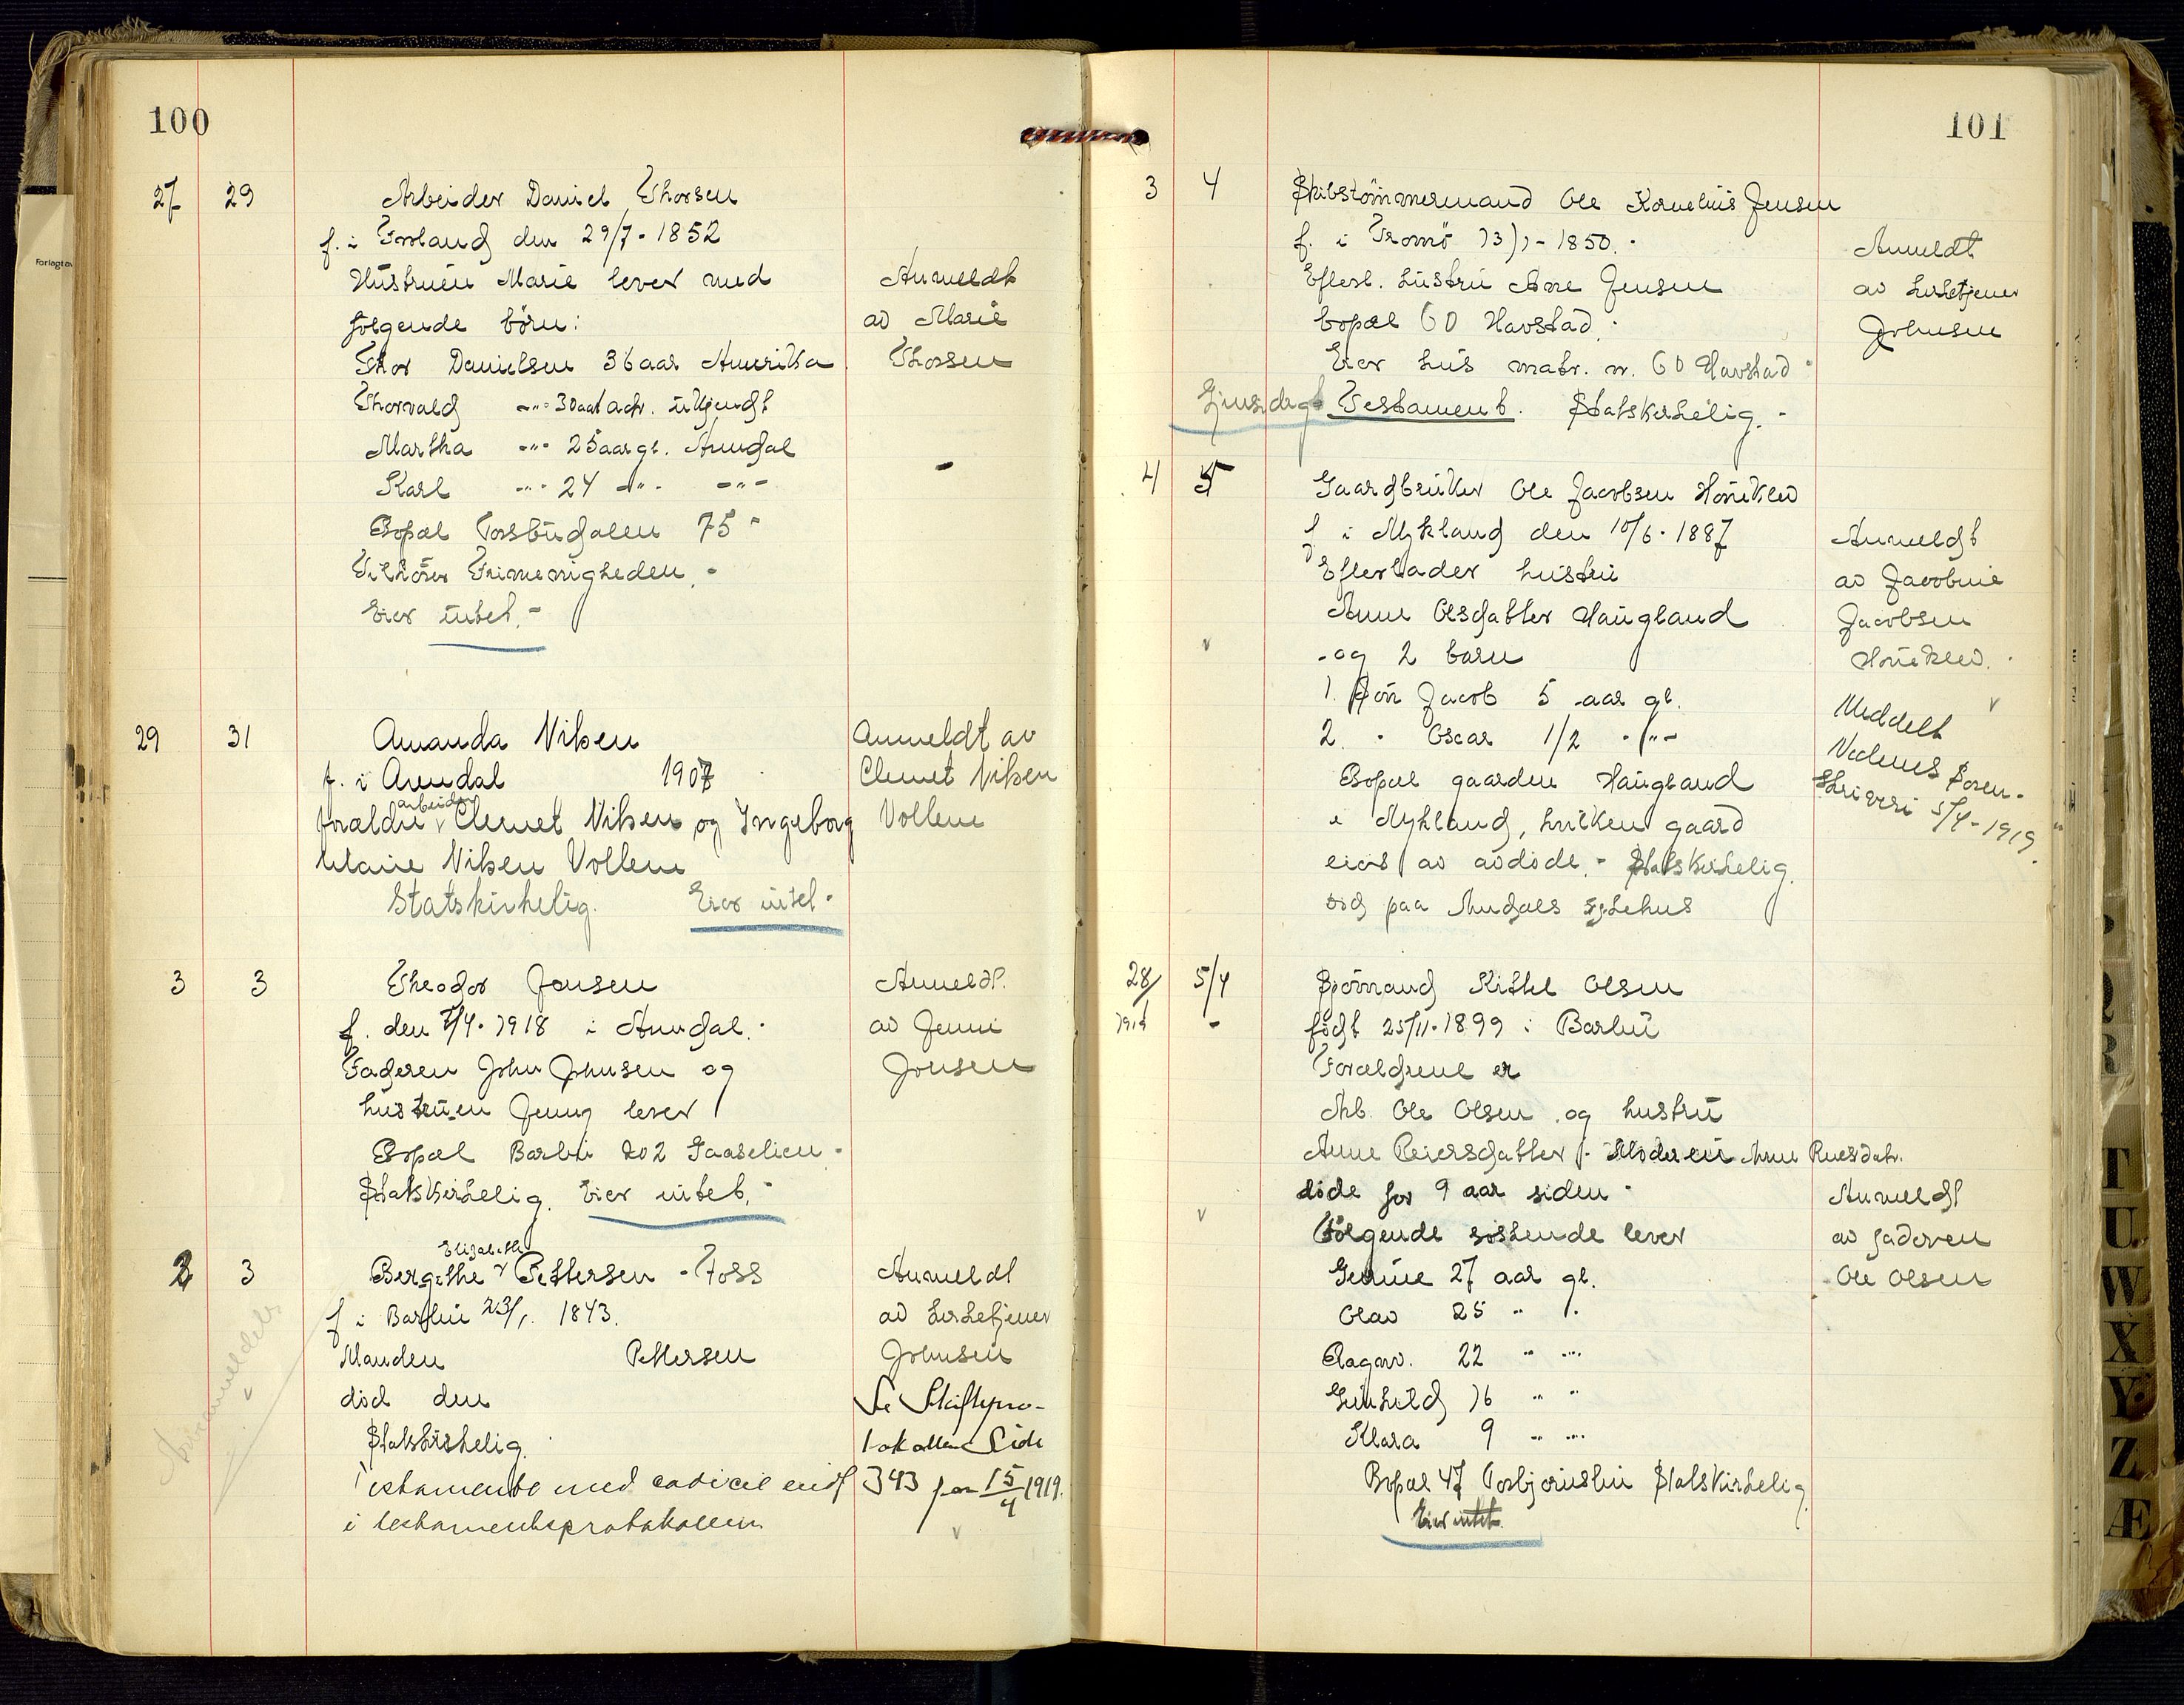 100
27 29 Arbeider Daniel Thorsen
f. i Froland den 29/7 - 1852
Hustruen Marie lever med Anmeldt
følgende børn: av Marie
Thor Danielsen 36 aar Amerika Thorsen
Thorvald -"- 30 aar adr. ukjendt
Martha -"- 25 aar gl. Arendal
Karl -"- 24 -"- -"-
Bopæl Torsbudalen 75 -
Tilhører Frimenigheden. -
Eier intet. -
29 31 Amanda Nilsen Anmeldt av
f. i Arendal 1907 Clemet Nilsen
forældre arbeider Clemet Nilsen og Ingeborg Vollene
Marie Nilsen Vollene
Statskirkelig. Eier intet -
3 3 Theodor Jonsen Anmeldt
f. den 7/4 - 1918 i Arendal. av Jenni
Faderen John Johnsen og Jonsen
hustruen Jenny lever
Bopæl Barbu 202 Gaaselien -
Statskirkelig. Eier intet. -
2 3 Bergithe Elisabeth Pettersen - Foss Anmeldt
f i Barbu 23/1. 1843. av kirketjener
Manden Pettersen Johnsen
død den Se Skiftepro-
Statskirkelig. tokollen Side
Testamente med codicil indf 343 pan 15/4 1919.
i testamentsprotokollen
101
3 4 Skibstømmermand Ole Kornelius Jensen
f. i Tromø 13/1 - 1850. - Anmeldt
Efterl. hustru Ane Jensen av kirketjener
bopæl 60 Havstad. Johnsen
Eier hus matr. nr. 60 Havstad -
Gjensidigt Testament. Statskirkelig. -
4 5 Gaardbruker Ole Jacobsen Honeklev
f i Mykland den 10/6 - 1887 Anmeldt
Efterlader hustru av Jacobine
Anne Olsdatter Haugland Jacobsen
og 2 barn Honeklev.
1. søn Jacob 5 aar gl. Meddelt
2. " Oscar 1/2 - " - Nedenes Soren-
Bopæl gaarden Haugland skriveri 5/4 - 1919.
i Mykland, hvilken gaard
eies av avdøde. - Statskirkelig.
død paa Arendals sykehus
28/ 5/4 Sjømand Kittel Olsen
1919 - født 25/11 - 1899 i Barbu
Forældrene er
Arb. Ole Olsen og hustru
Anne Reiersdatter. Moderen Anne Reiersdatr.
døde for 9 aar siden - Anmeldt
Følgende søskende lever av faderen
27 aar gl. Ole Olsen
Olav 25 " "
Ragnv. 22 " "
Gunhild 16 " "
Klara 9 " "
Bopæl 47 Torbjørnsbu Statskirkelig
Eier intet.